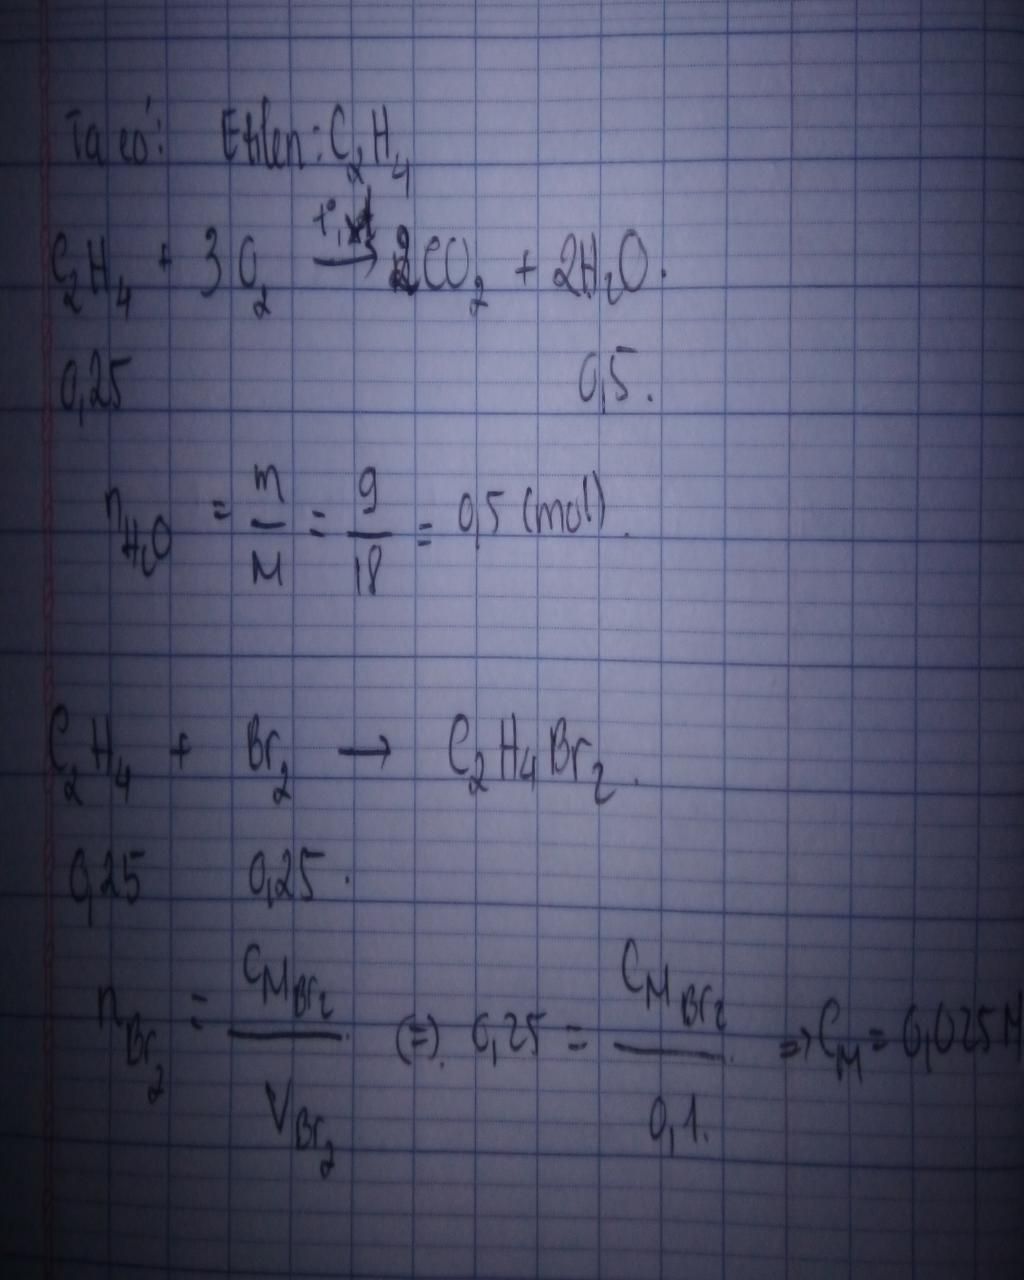 Ta có: Etilen: C₂H₄
C₂H₄ + 3O₂ →(t°, xt) 2CO₂ + 2H₂O.
0,25 0,5.
n_H₂O = m/M = 9/18 = 0,5 (mol).
C₂H₄ + Br₂ → C₂H₄Br₂.
0,25 0,25.
n_Br₂ = C_M Br₂ / V_Br₂ (=). 0,25 = C_M Br₂ / 0,1. => C_M = 0,025M